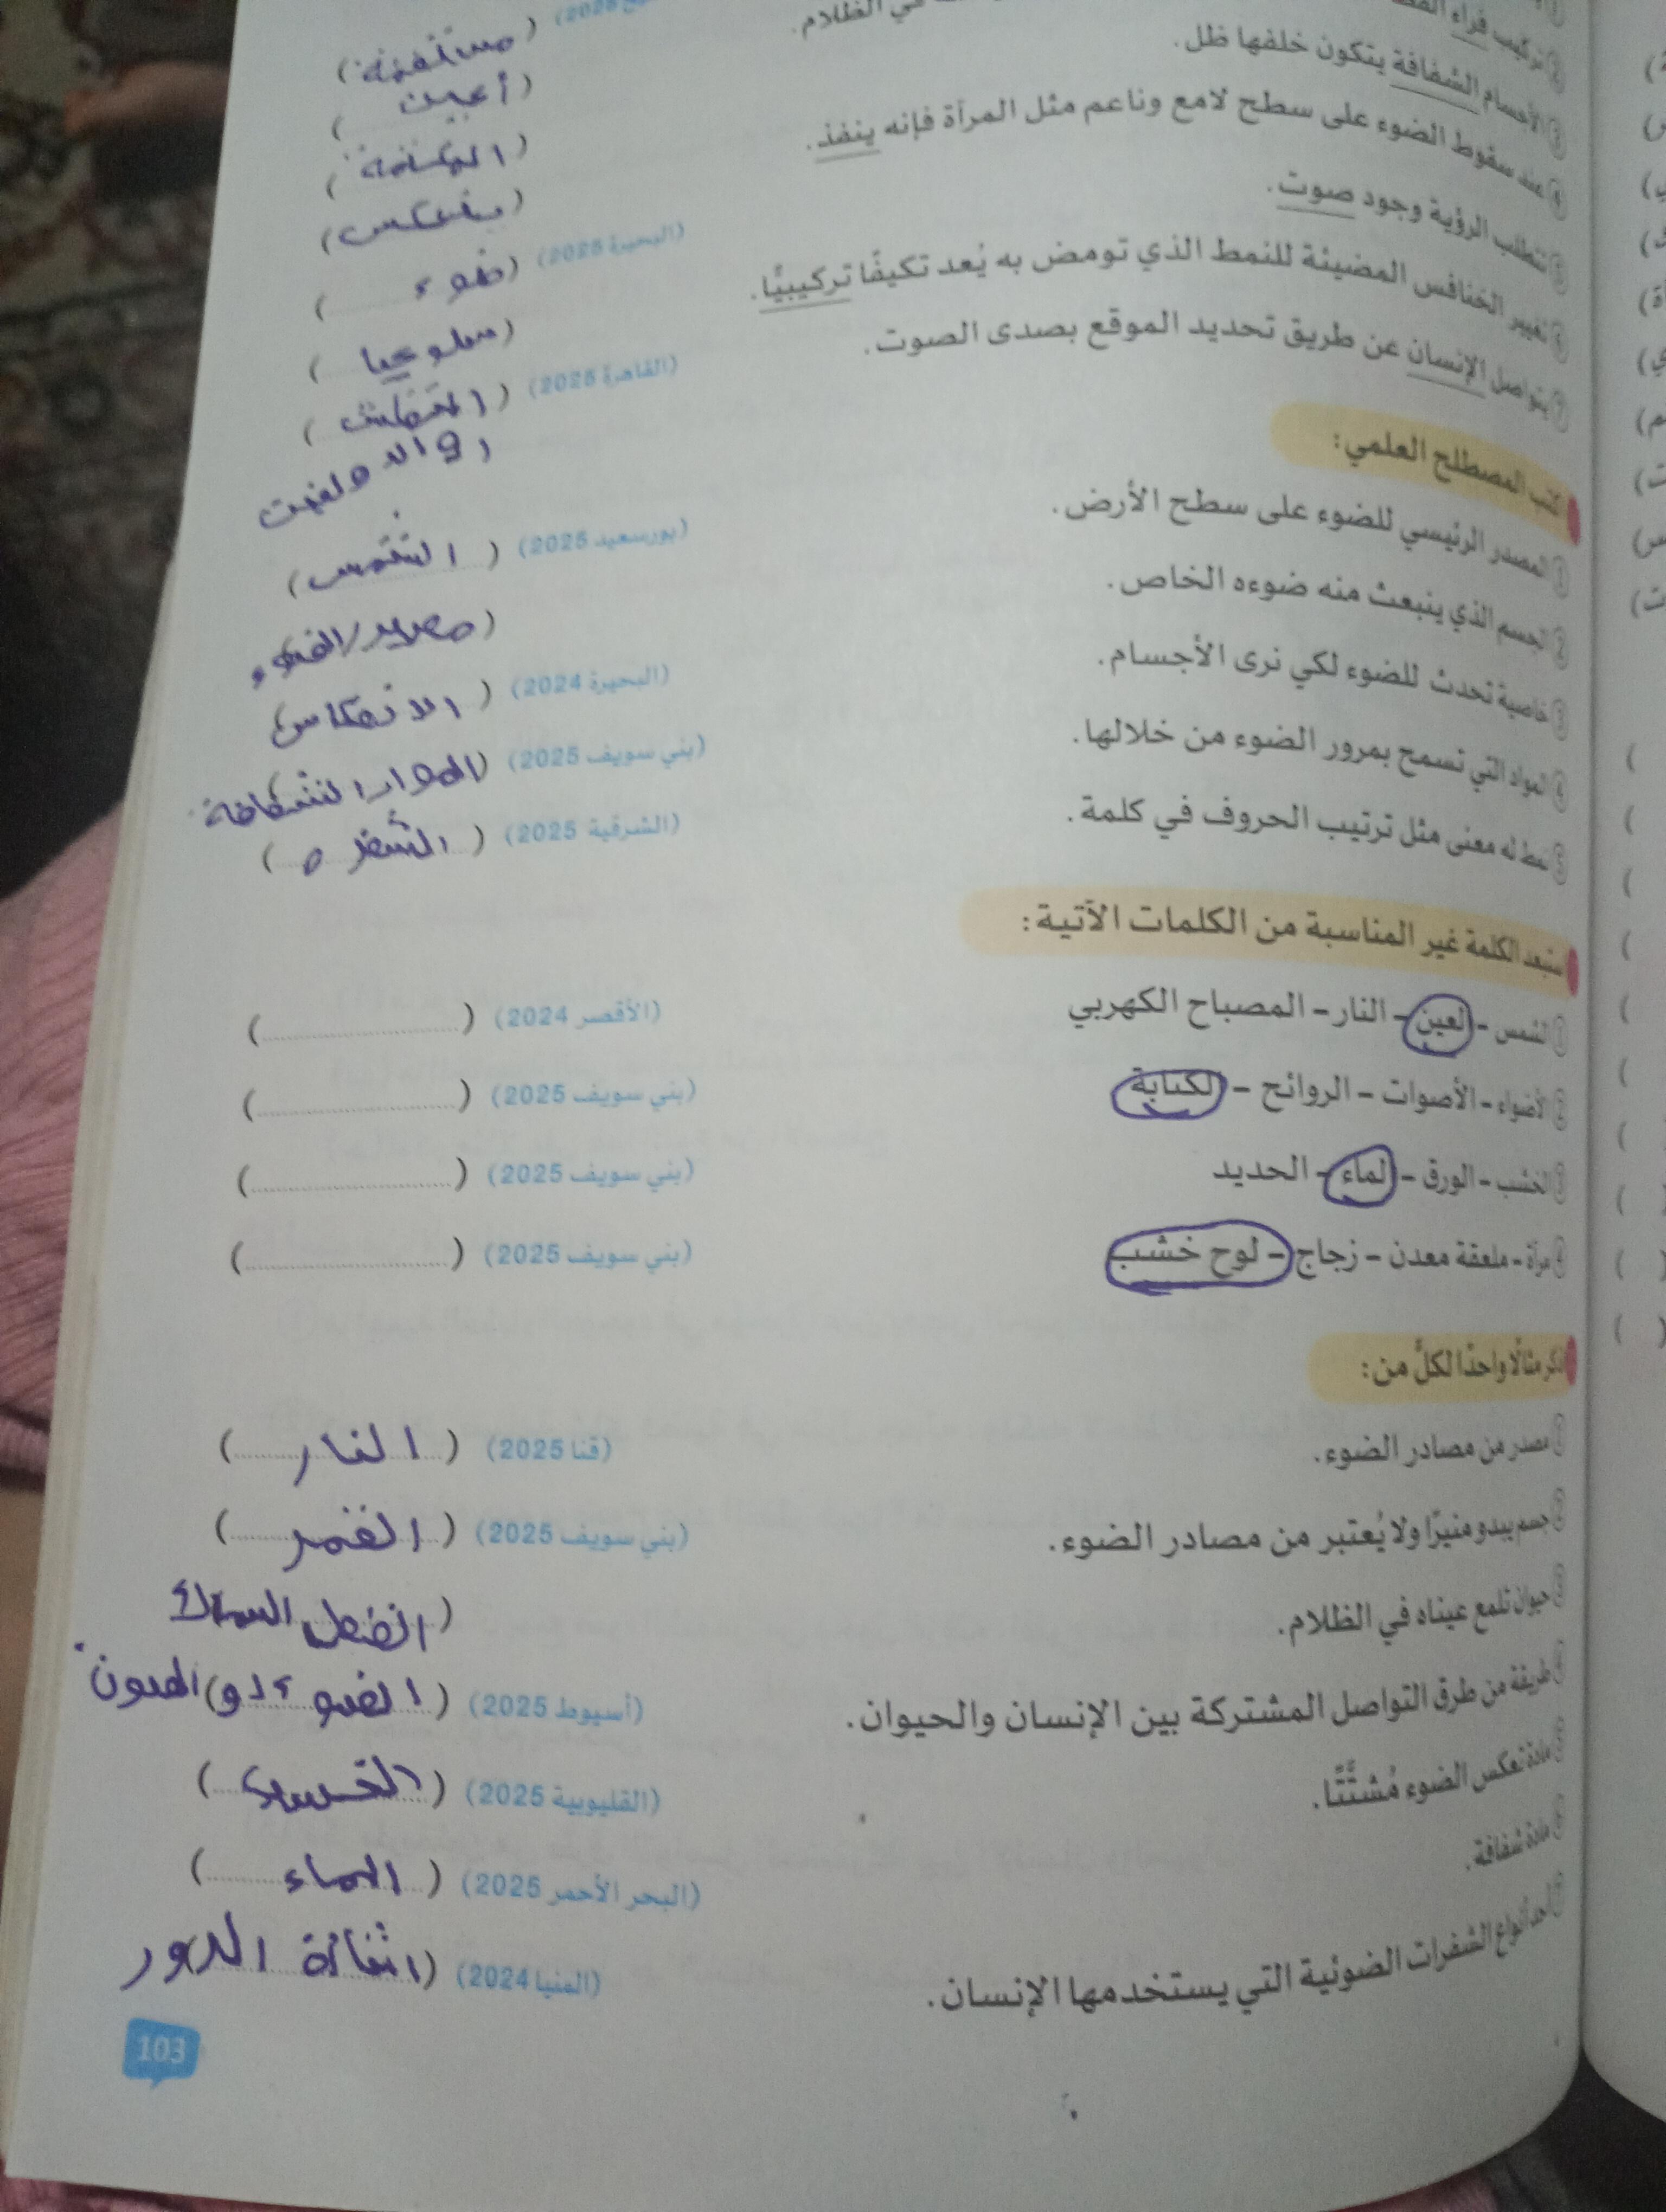 في الظلام.
(مستقيمة)
② تركيب فراء
(أعين)
③ الأجسام الشفافة يتكون خلفها ظل.
④ عند سقوط الضوء على سطح لامع وناعم مثل المرآة فإنه ينفذ.
(ينعكس)
⑤ تتطلب الرؤية وجود صوت. (البحيرة 2025) (ضوء)
⑥ تغيير الخنافس المضيئة للنمط الذي تومض به يُعد تكيفًا تركيبيًا. (سلوكيا)
⑦ يتواصل الإنسان عن طريق تحديد الموقع بصدى الصوت. (القاهرة 2025) (الخفاش
اكتب المصطلح العلمي:
① المصدر الرئيسي للضوء على سطح الأرض. (بورسعيد 2025) (الشمس)
② الجسم الذي ينبعث منه ضوءه الخاص.
③ خاصية تحدث للضوء لكي نرى الأجسام. (البحيرة 2024) (الانعكاس)
④ المواد التي تسمح بمرور الضوء من خلالها. (بني سويف 2025) (المواد الشفافة
⑤ نمط له معنى مثل ترتيب الحروف في كلمة. (الشرقية 2025) (الشفره)
استبعد الكلمة غير المناسبة من الكلمات الآتية:
① الشمس - العين - النار - المصباح الكهربي (الأقصر 2024) (..........)
② الأضواء - الأصوات - الروائح - الكتابة (بني سويف 2025) (..........)
③ الخشب - الورق - الماء - الحديد (بني سويف 2025) (..........)
④ مرآة - ملعقة معدن - زجاج - لوح خشب (بني سويف 2025) (..........)
اذكر مثالًا واحدًا لكلٍّ من:
① مصدر من مصادر الضوء. (قنا 2025) (النار)
② جسم يبدو منيرًا ولا يُعتبر من مصادر الضوء. (بني سويف 2025) (القمر)
③ حيوان تلمع عيناه في الظلام.
④ طريقة من طرق التواصل المشتركة بين الإنسان والحيوان. (أسيوط 2025)
⑤ مادة تعكس الضوء مُشتَّتًا. (القليوبية 2025)
⑥ مادة شفافة. (البحر الأحمر 2025) (الماء)
⑦ أحد أنواع الشفرات الضوئية التي يستخدمها الإنسان. (المنيا 2024)
103